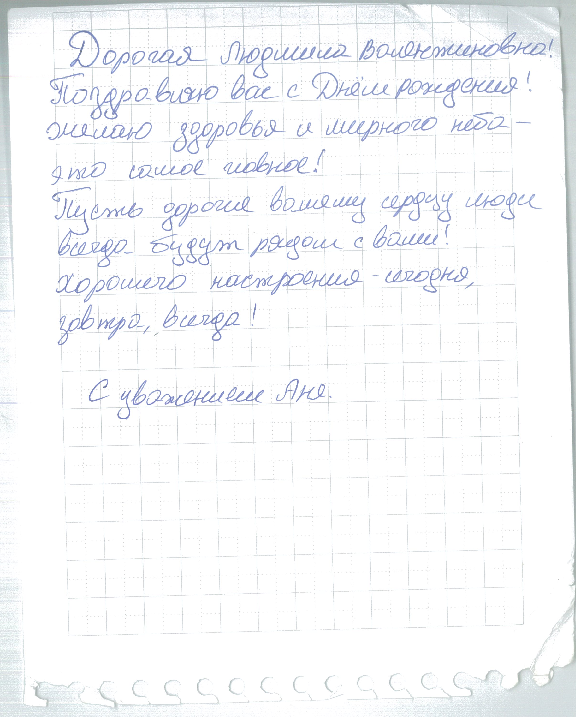 Дорогая Людмила Валентиновна!
Поздравляю вас с Днём рождения!
Желаю здоровья и мирного неба –
это самое главное!
Пусть дорогие вашему сердцу люди
всегда будут рядом с вами!
Хорошего настроения - сегодня,
завтра, всегда!
С уважением Аня.